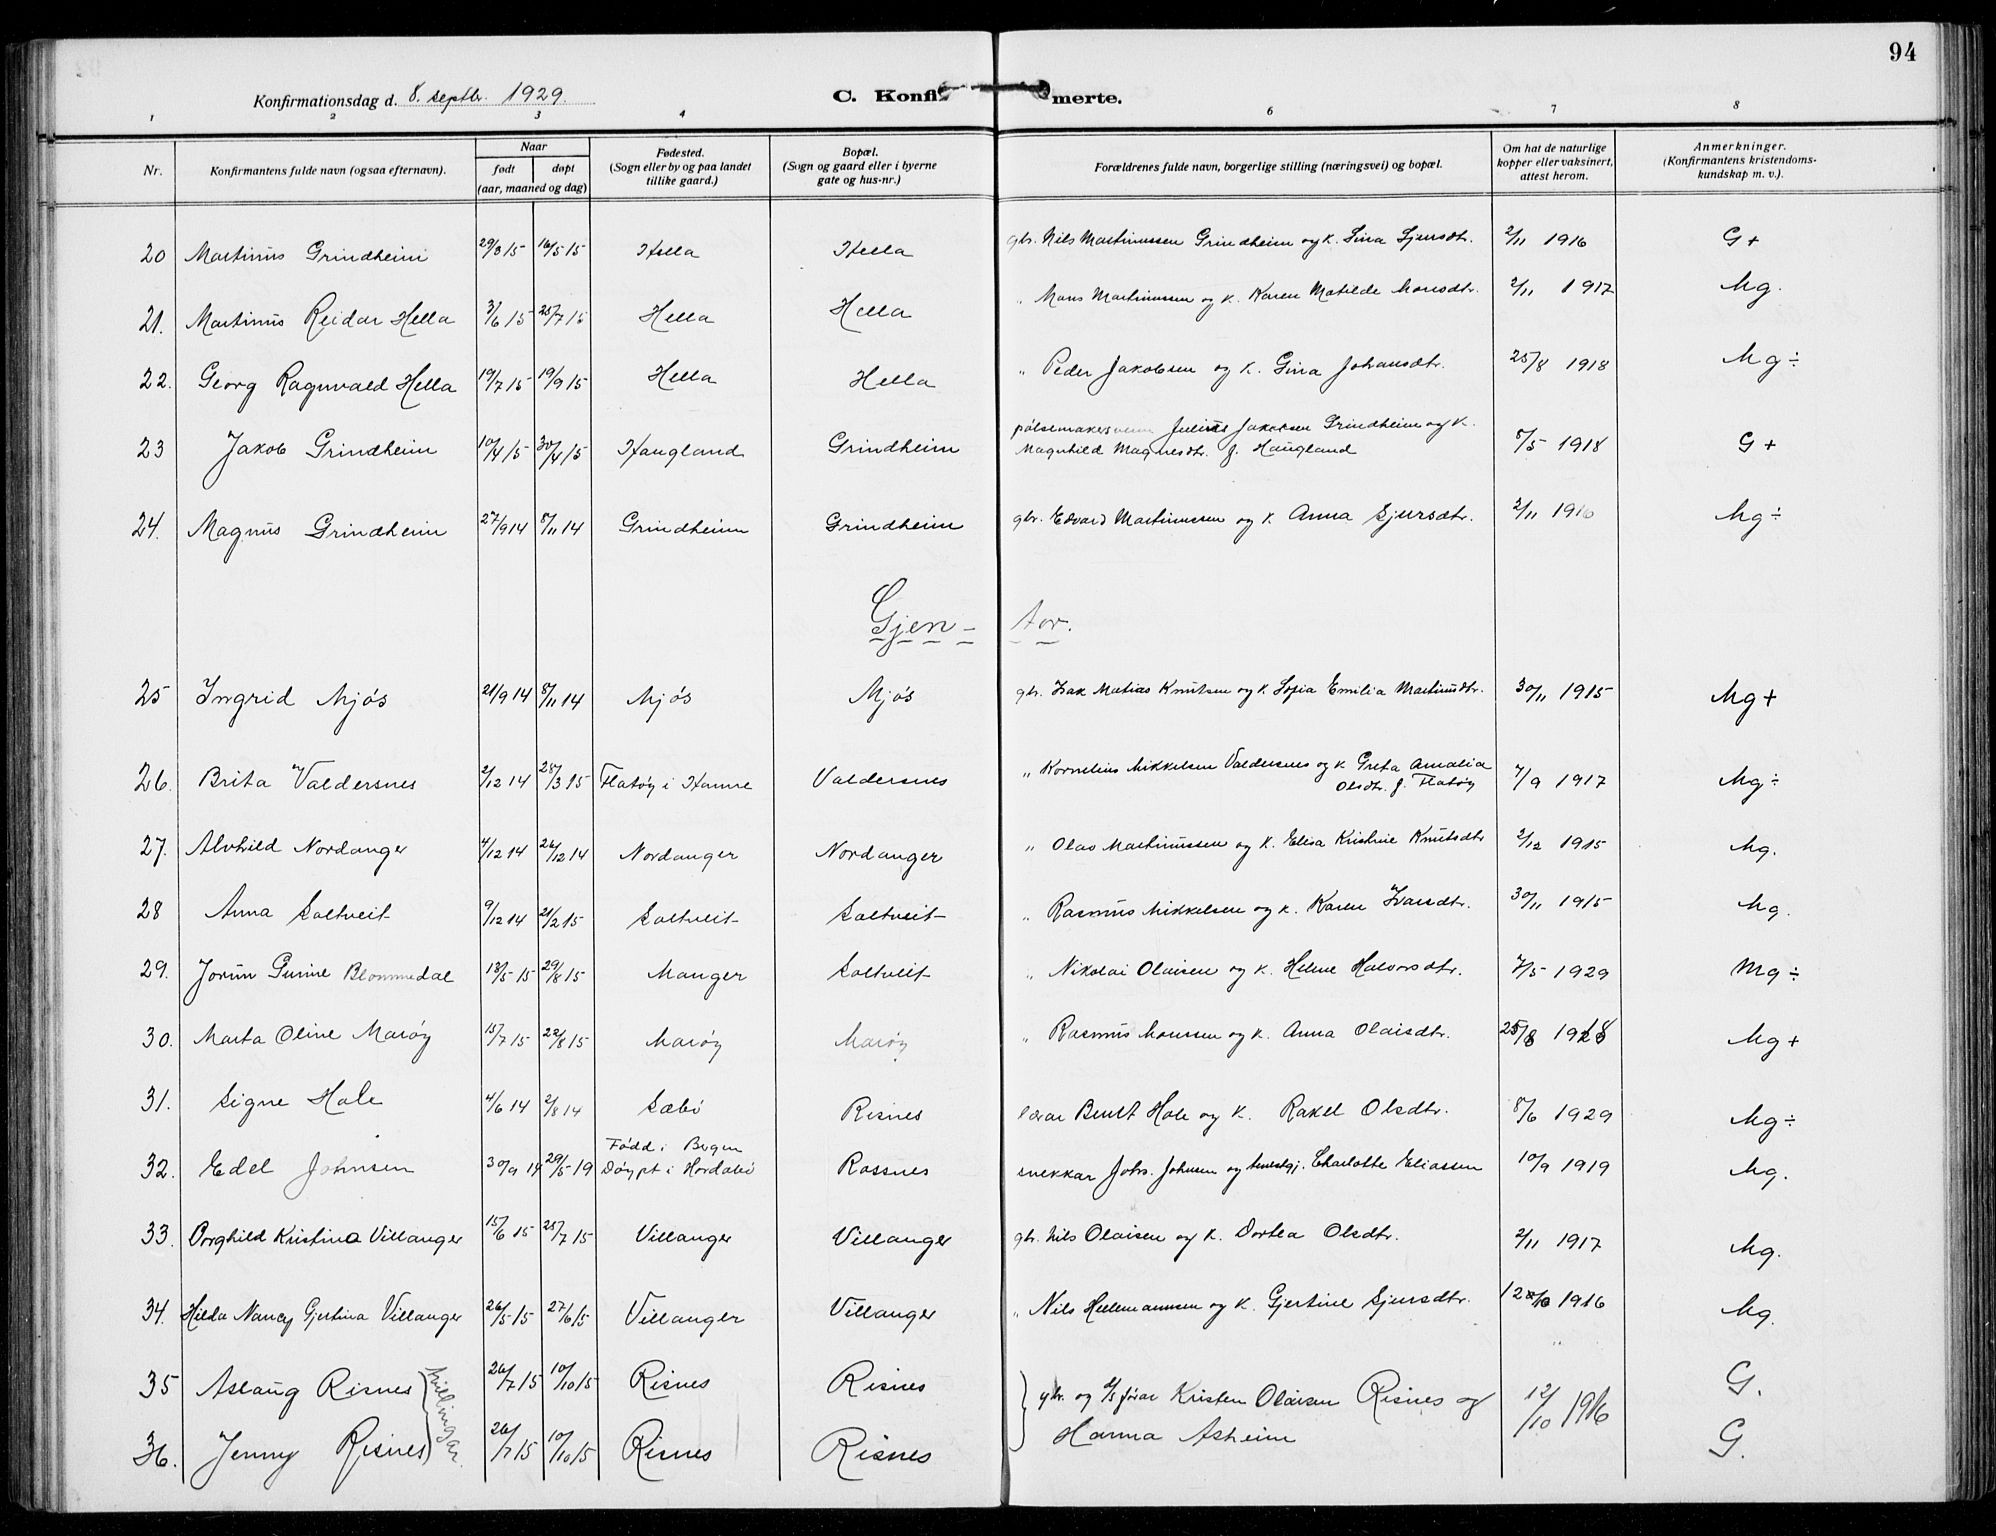 94
Konfirmationsdag d. 8. septbr. 1929.
C. Konfir merte.
1 2 3 4 6 7 8
Nr. Konfirmantens fulde navn (ogsaa efternavn). Naar født døpt (aar, maaned og dag) Fødested. (Sogn eller by og paa landet tillike gaard.) Bopæl. (Sogn og gaard eller i byerne gate og hus-nr.) Forældrenes fulde navn, borgerlige stilling (næringsvei) og bopæl. Om hat de naturlige kopper eller vaksinert, attest herom. Anmerkninger. (Konfirmantens kristendoms-kundskap m. v.).
20 Martinus Grindheim 29/3 15 16/5 15 Hella Hella gbr. Nils Martinussen Grindheim og k. Lina Sjursdtr. 2/11 1916 G+
21. Martinus Reidar Hella 3/6 15 25/7 15 Hella Hella " Mons Martinussen og k. Karen Matilde Monsdtr. 2/11 1917 Mg.
22. Georg Ragnvald Hella 19/7 15 19/9 15 Hella Hella " Peder Jakobsen og k. Gina Johansdtr. 25/8 1918 Mg÷
23 Jakob Grindheim 10/4 15 30/4 15 Haugland Grindheim pølsemakersvenn Julius Jakobsen Grindheim og k. Magnhild Magnesdtr. f. Haugland 8/5 1918 G+
24. Magnus Grindheim 27/9 14 8/11 14 Grindheim Grindheim gbr. Edvard Martinussen og k. Anna Sjursdtr. 2/11 1916 Mg÷
Gjen- tor.
25 Ingrid Mjøs 21/9 14 8/11 14 Mjøs Mjøs gbr. Isak Matias Knutsen og k. Sofia Emilia Martinusdtr. 30/11 1915 Mg+
26. Brita Valdersnes 2/12 14 28/3 15 Flatøy i Hamre Valdersnes " Kornelius Mikkelsen Valdersnes og k Greta Amalia Olsdtr. f. Flatøy 7/9 1917 Mg÷
27. Alvhild Nordanger 4/12 14 26/12 14 Nordanger Nordanger " Olao Martinussen og k. Elisa Kristine Knutsdtr 2/12 1915 Mg.
28 Anna Soltveit 9/12 14 21/2 15 Soltveit Soltveit " Rasmus Mikkelsen og k. Karen Ivarsdtr. 30/11 1915 Mg.
29. Jorun Gunne Blommedal 13/5 15 29/8 15 Manger Soltveit " Nikolai Olaisen og k. Helene Halvorsdtr. 7/5 1929 Mg÷
30. Marta Oline Marøy 15/7 15 22/8 15 Marøy Marøy " Rasmus Monssen og k. Anna Olaisdtr. 25/8 1918 Mg+
31. Signe Hole 4/6 14 2/8 14 Sæbø Risnes lærar Bernt Hole og k. Rakel Olsdtr. 8/6 1929 Mg÷
32. Edel Johnsen 30/9 14 29/5 19 Fødd i Bergen Døypt i Hordabø Rossnes snekkar Johs. Johnsen og Charlotte Eliassen 10/9 1919 Mg.
33. Borghild Kristina Villanger 15/6 15 25/7 15 Villanger Villanger gbr. Nils Olaisen og k. Dortea Olsdtr. 2/11 1917 Mg.
34. Hilda Nancy Gjertina Villanger 26/5 15 27/6 15 Villanger Villanger " Nils Hellemannsen og k. Gjertine Sjursdtr. 12/10 1916 Mg.
35 Aslaug Risnes 26/7 15 10/10 15 Risnes Risnes gbr. og førar Kristen Olaisen Risnes og Hanna Asheim 12/10 1916 G.
Tvillingar.
36. Jenny Risnes 26/7 15 10/10 15 Risnes Risnes G.